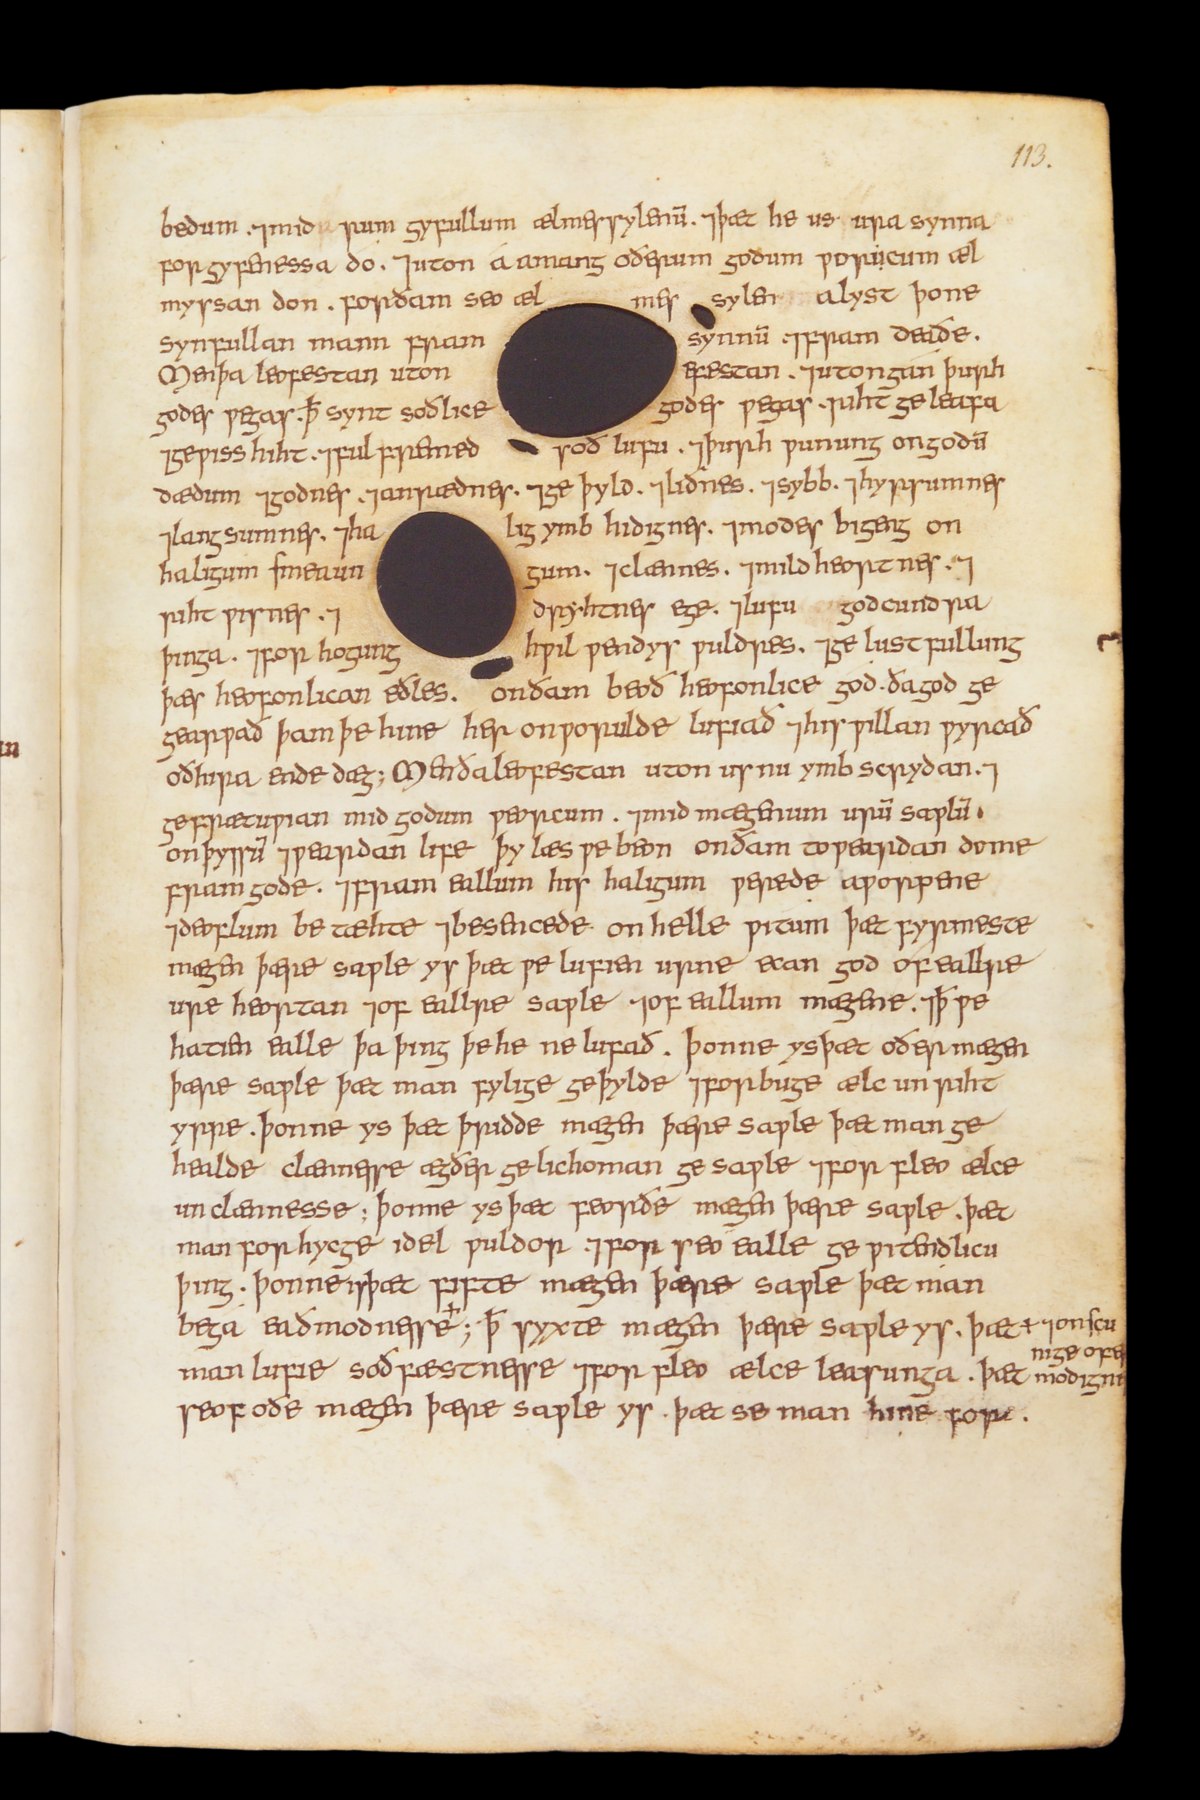 113.
bedum . ⁊mid rum gyfullum ælmessylenū. ⁊þæt he us ura synna
forgyfenessa do. ⁊uton á amang oðerum godum ƿeorcum æl
myssan don . forðam seo æl mes sylen alyst þone
synfullan mann fram synnū ⁊fram deaðe.
Men þa leofestan uton efestan . ⁊utongan þurh
godes ƿegas . þ̄ synt soðlice godes ƿegas . riht geleafa
⁊geƿiss hiht . ⁊fulfremed soð lufu . ⁊þurh ƿunung ongodū
dædum ⁊godnes . ⁊anrædnes. ⁊ge þyld. ⁊liðnes. ⁊sybb. ⁊hyrsumnes
⁊langsumnes. ⁊ha lig ymb hidignes. ⁊modes bigeng on
haligum smeaun gum. ⁊clænnes. ⁊mildheortnes. ⁊
riht ƿisnes . ⁊ dryhtnes ege. ⁊lufu godcundra
þinga. ⁊for hogung hƿil ƿendys ƿuldres. ⁊ge lustfullung
þæs heofonlican eðles. onðam beoð heofonlice god. ðagod ge
gearƿað þam þe hine her on ƿorulde lufiað ⁊his ƿillan ƿyrcað
oðhira ende dæg; Men ðaleofestan uton us nu ymb scrydan. ⁊
gefrætuƿian mid godum ƿeorcum . ⁊mid mægenum urū saƿlū.
onþyssū ⁊ƿeardan life þy læs ƿe beon onðam toƿeardan dome
fram gode. ⁊fram eallum his haligum ƿerede aƿorpene
⁊deoflum be tæhte ⁊besencede on helle ƿitum þæt fyrmeste
mægen þære saƿle ys þæt ƿe lufien urne ecan god of eallre
ure heortan ⁊of eallre saƿle ⁊of eallum mægene. ⁊þ̄ ƿe
hatien ealle þa þing þe he ne lufað. þonne ys þæt oðer mægen
þære saƿle þæt man fylige geþylde ⁊forbuge ælc un riht
yrre . þonne ys þæt þridde mægen þære saƿle þæt man ge
healde clænnesse ægðer ge lichoman ge saƿle ⁊for fleo ælce
unclænnesse; þonne ys þæt feorðe mægen þære saƿle . þæt
man forhycge idel ƿuldor ⁊for seo ealle ge ƿitendlicu
þing. þonne is þæt fifte mægen þære saƿle þæt man
bega eadmodnesse ; þ̄ syxte mægen þære saƿle ys. þæt
⁊onscu
nige ofe
modigne
man lufie soðfæstnesse ⁊for fleo ælce leasunga . þæt
seofoðe mægen þære saƿle ys . þæt se man hine for .